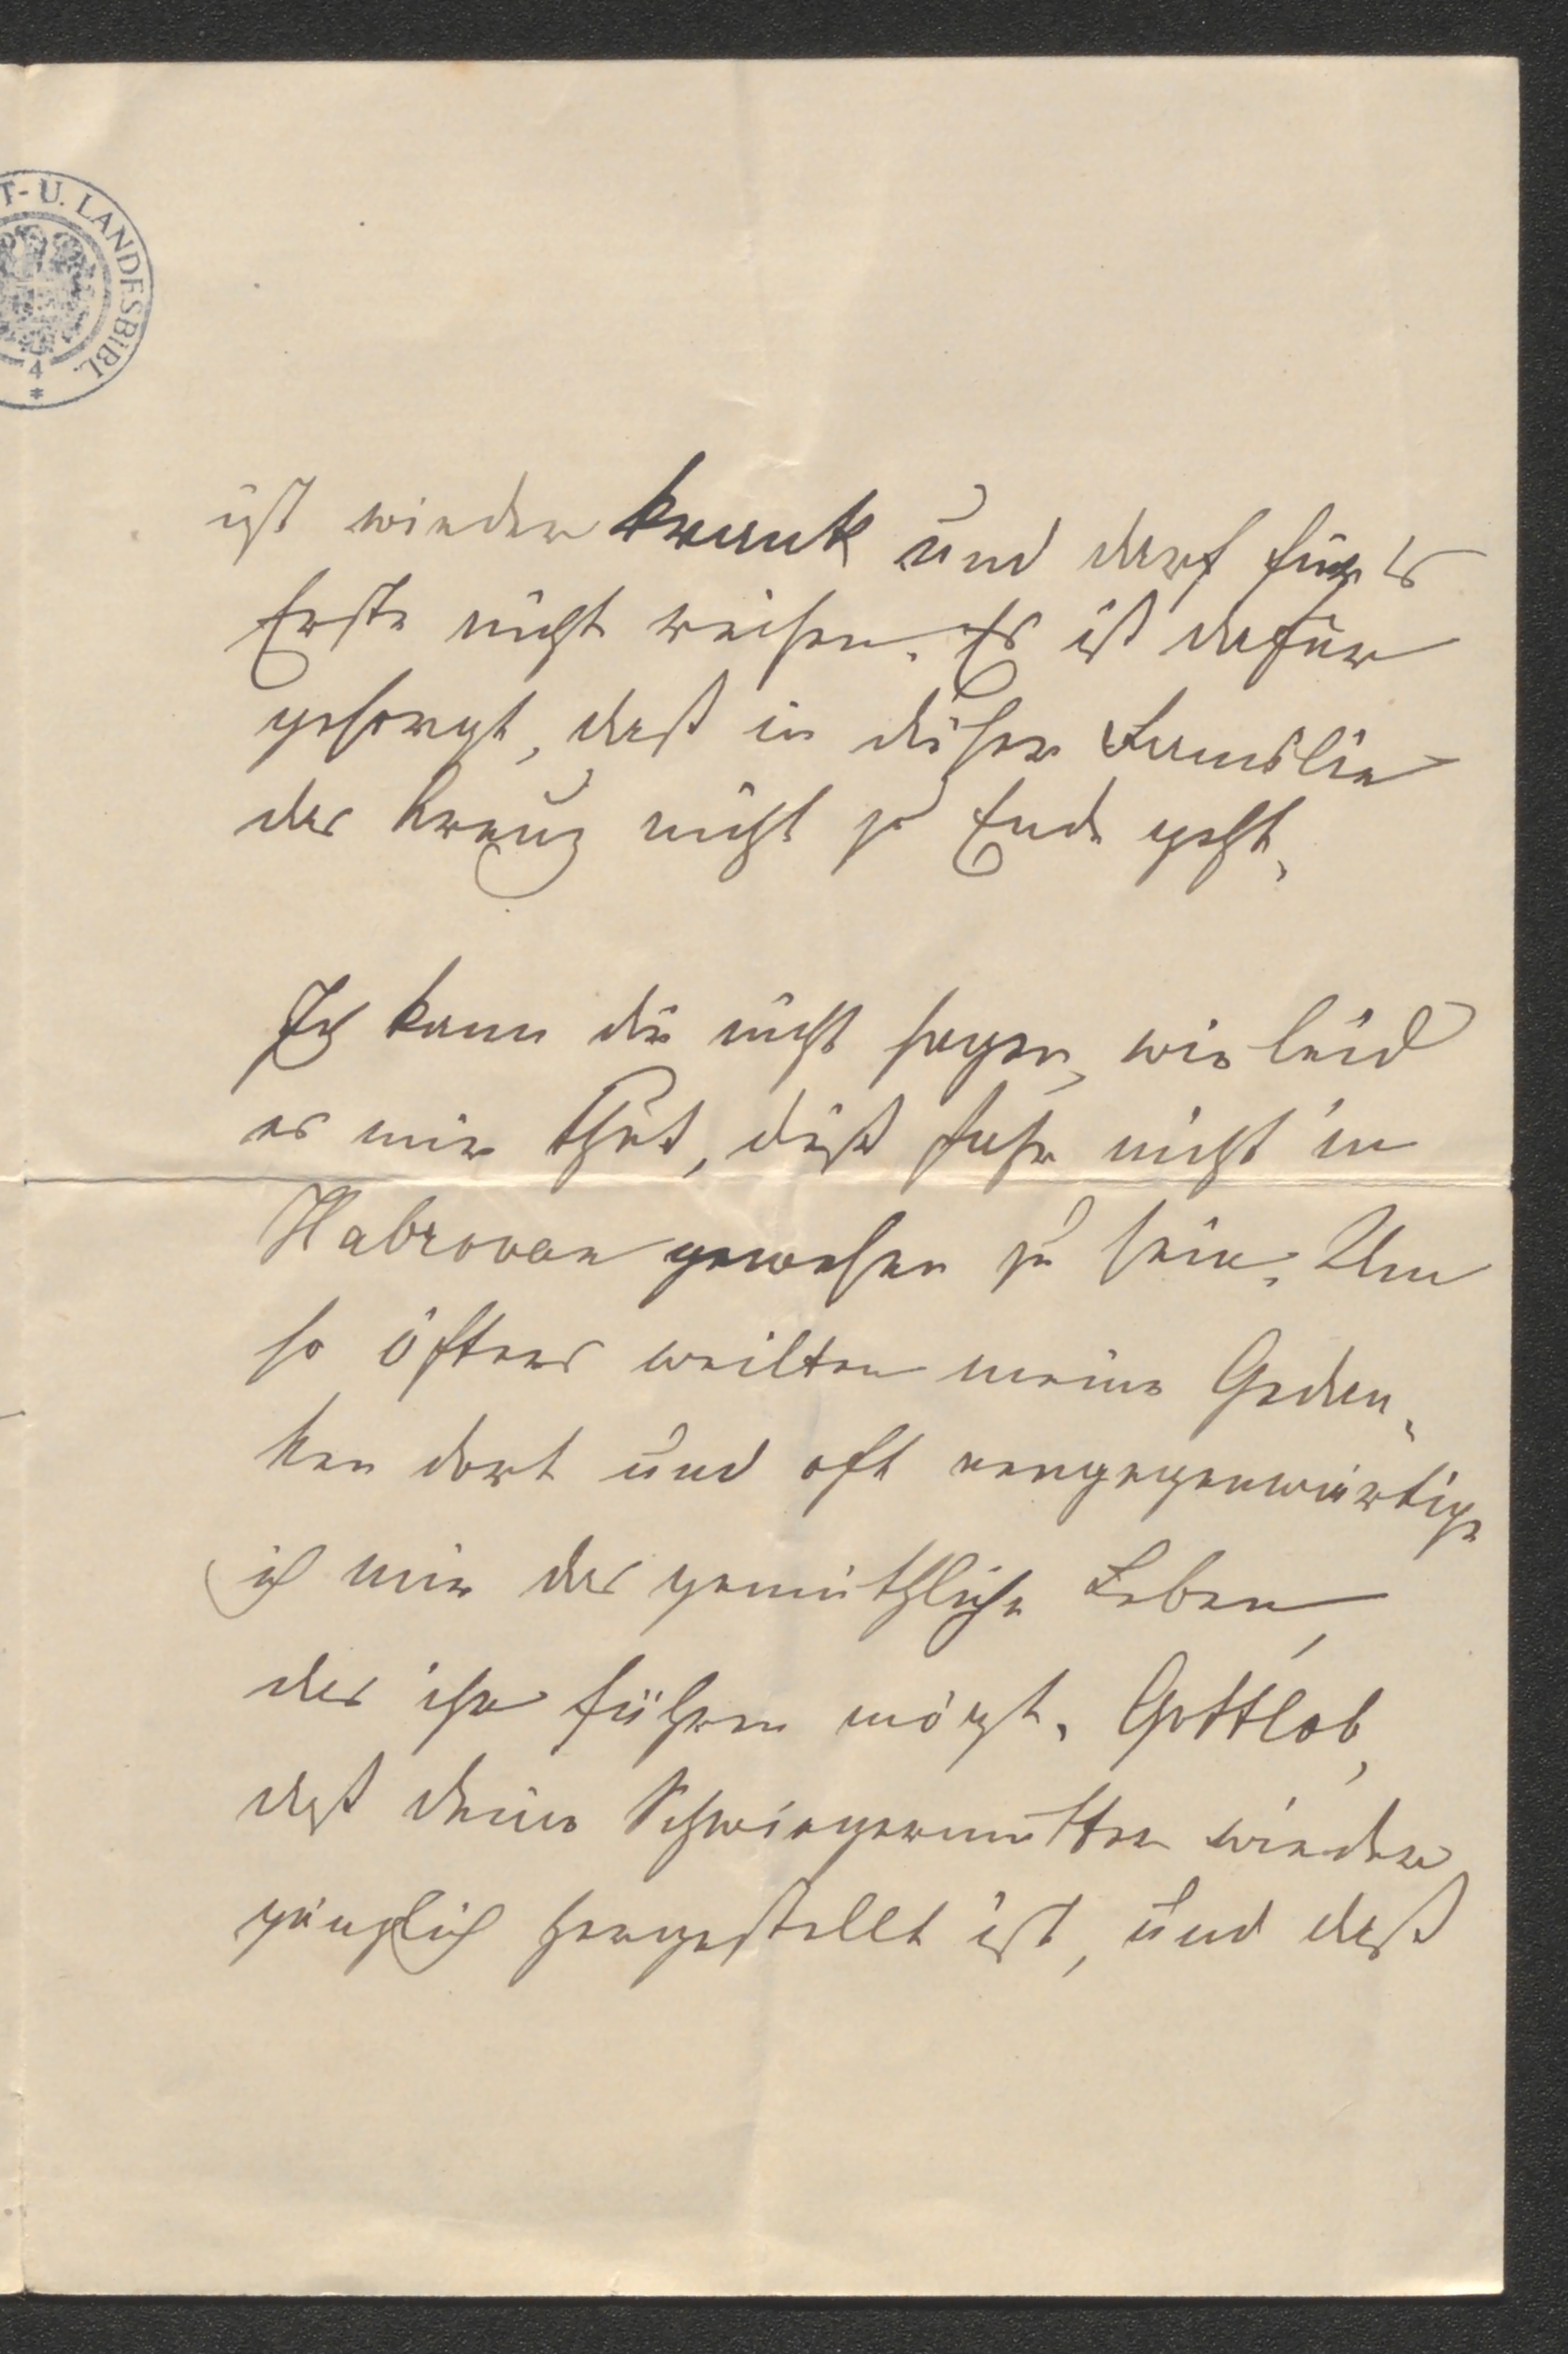 T- U. LANDESBIBL.
4
*
ist wieder krank und darf für's
Erste nicht reisen. Es ist dafür
gesorgt, daß in dieser Familie
das Kreuz nicht zu Ende geht.
Ich kann dir nicht sagen, wie leid
es mir thut, dieß Jahr nicht in
Habrovan gewesen zu sein. Um
so öfters weilten meine Gedan-
ken dort und oft vergegenwärtige
ich mir das gemüthliche Leben,
das ihr führen mögt. Gottlob,
daß deine Schwiegermutter wieder
gänzlich hergestellt ist, und daß